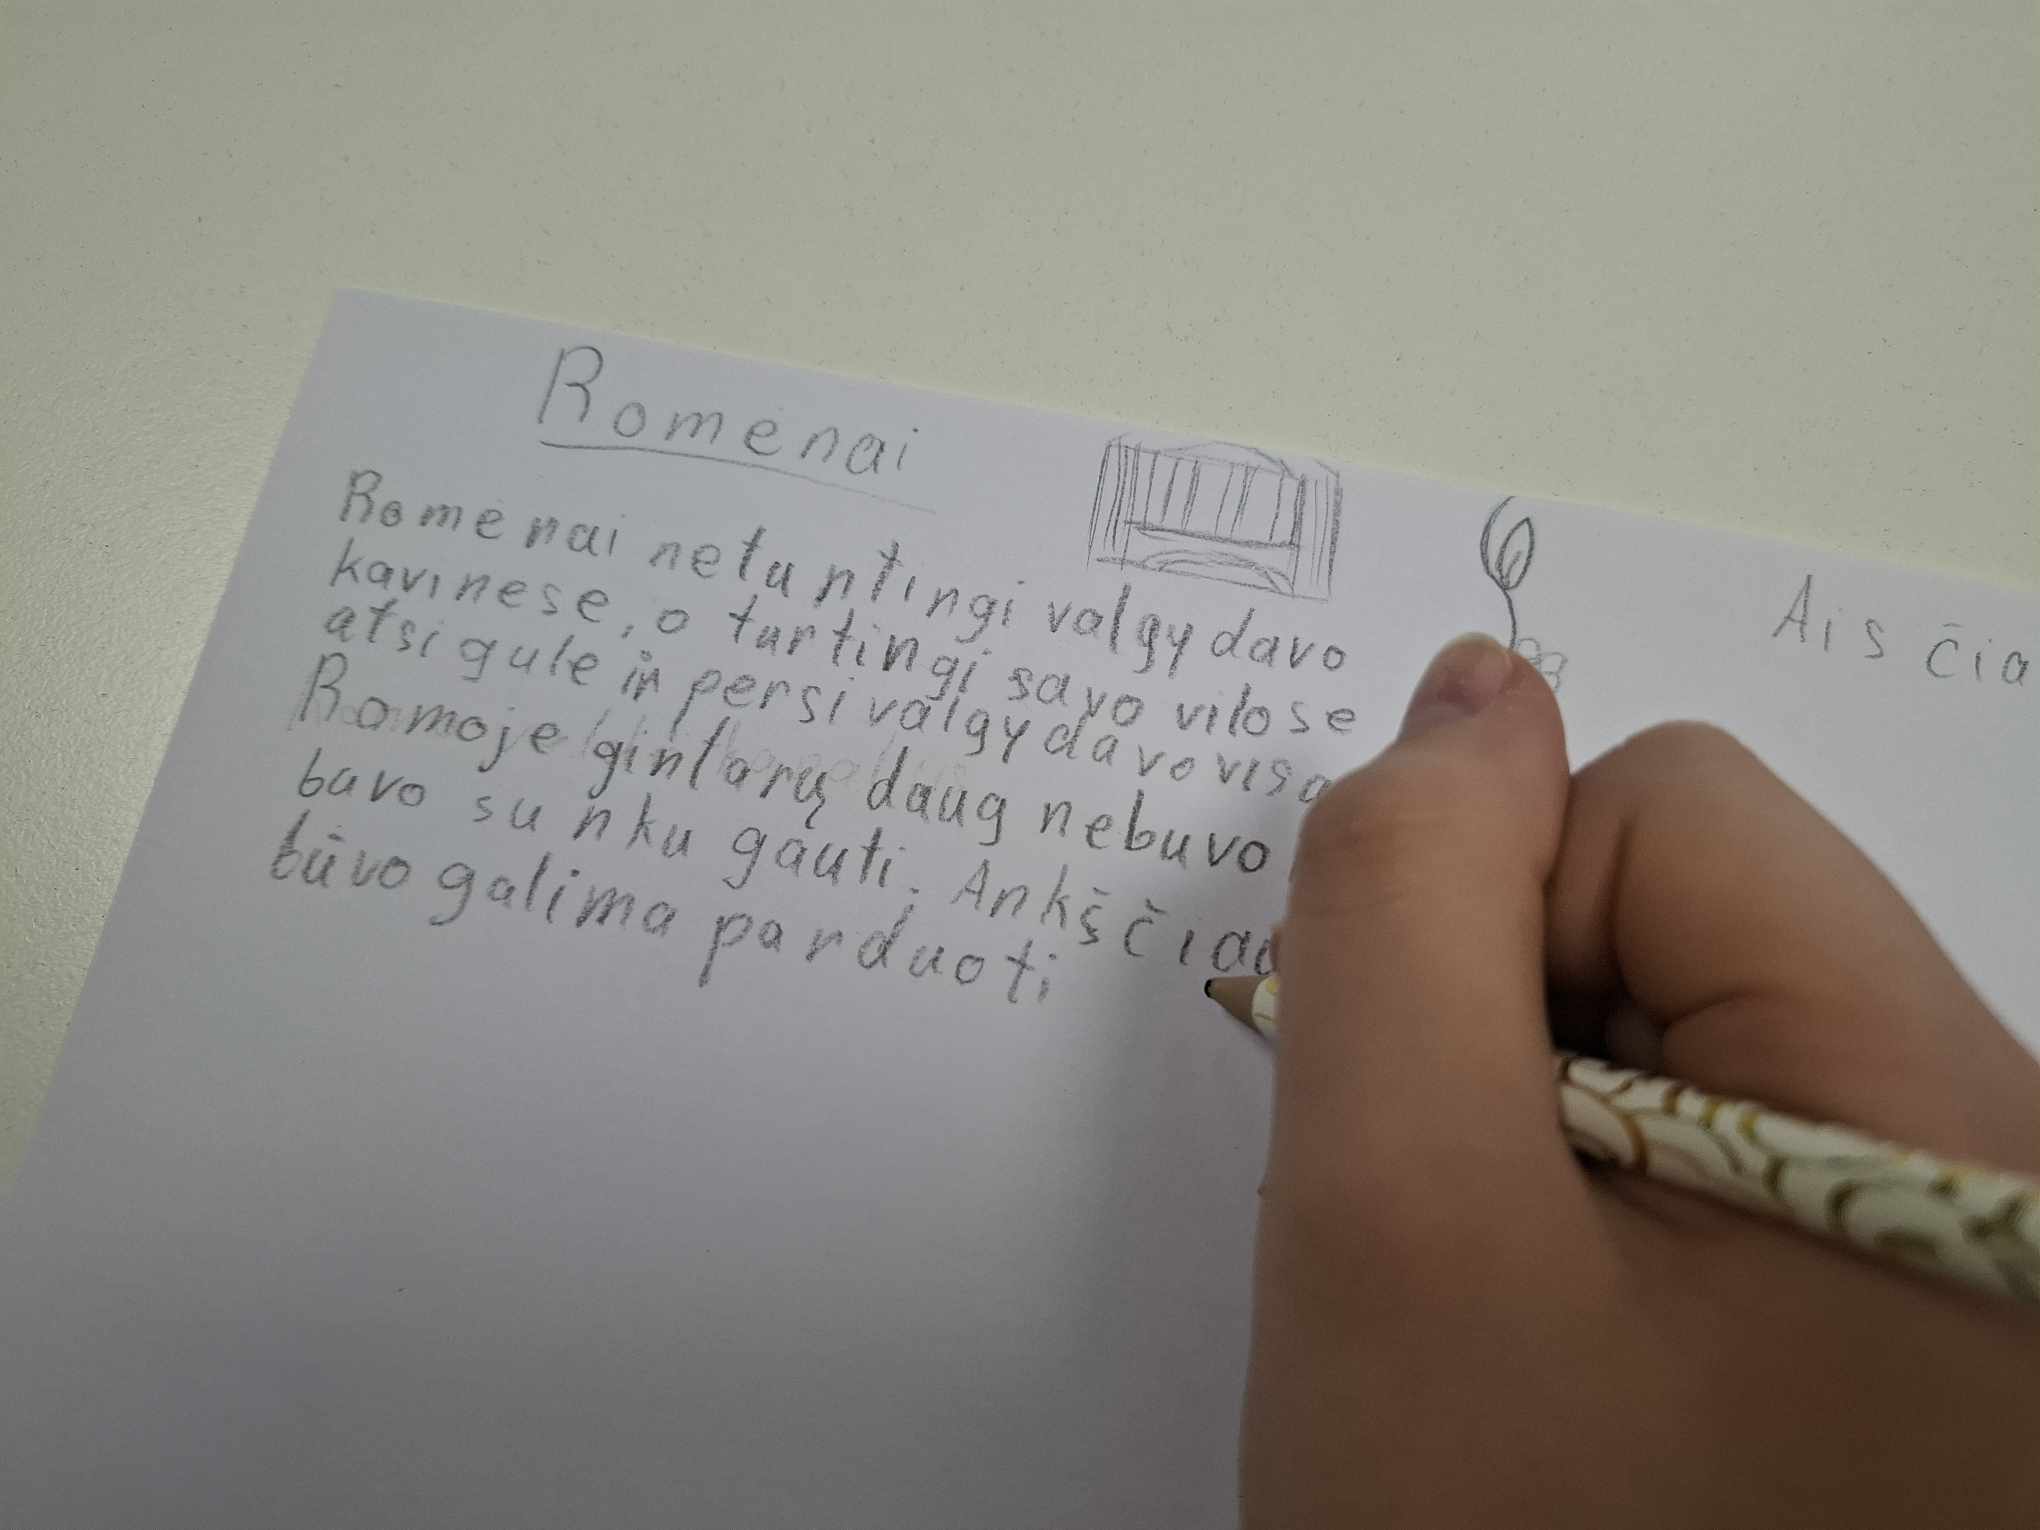 Romėnai
Romėnai neturtingi valgydavo
kavinėse, o turtingi savo vilose
atsigulę ir persivalgydavo visa
Romoje gintarų daug nebuvo
buvo sunku gauti. Ankščiau
būvo galima parduoti
Aisčia